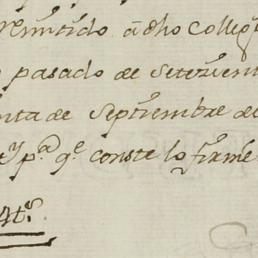 remitido à dho Colleg
pasado de setecien
nta de Septiembre de
ty pª qe conste lo firmé
4ts.